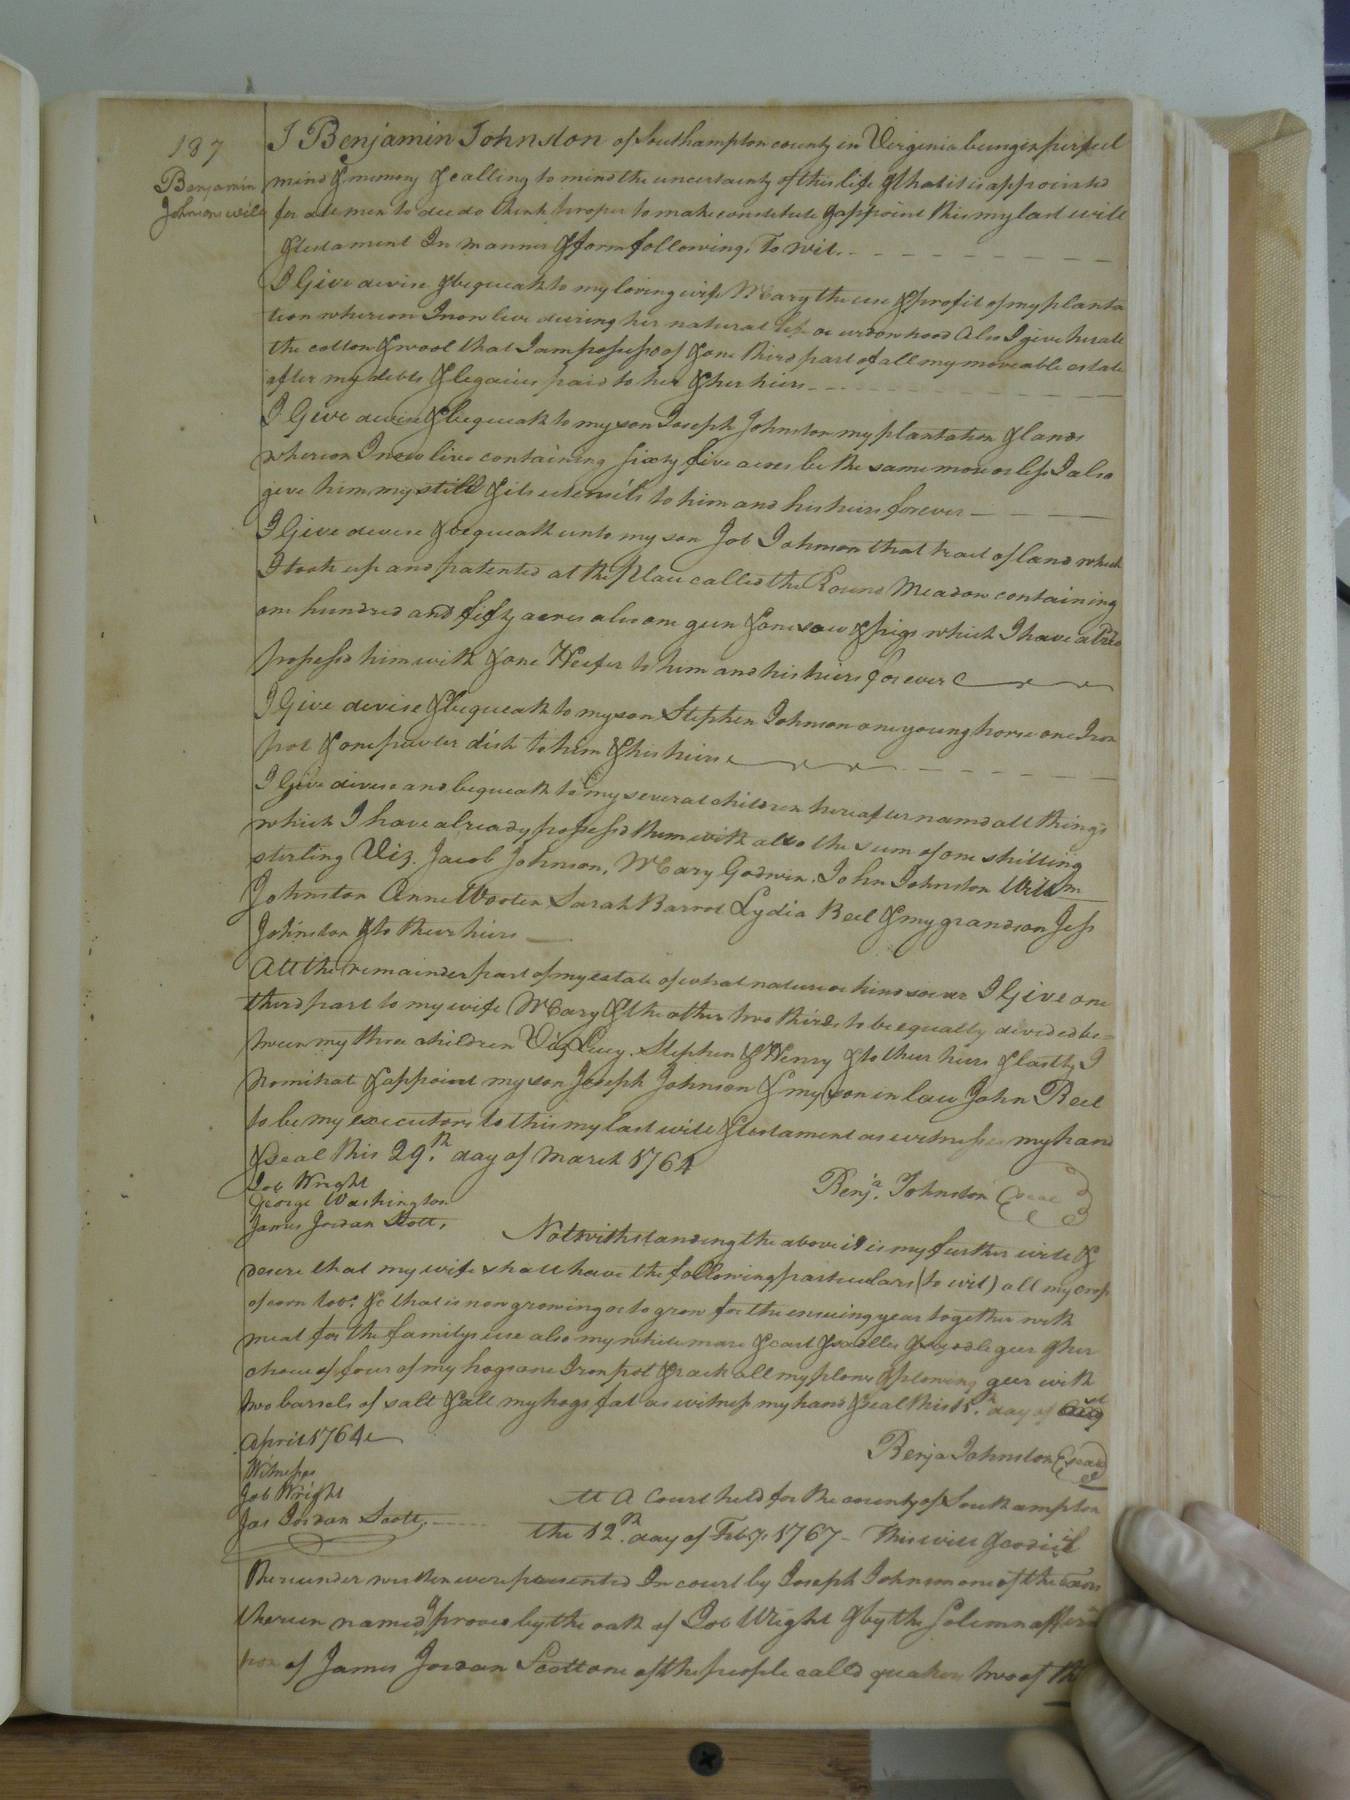 187
Benjamin
Johnson will
I Benjamin Johnston of Southampton county in Virginia being in perfect
mind & memory & calling to mind the uncertainty of this life & that it is appointed
for all men to die do think proper to make constitute & appoint this my last will
& testament In manner & form following, To wit.
I Give devise & bequeath to my loving wife Mary the use & profit of my planta
tion whereon I now live during her natural life or widowhood Also I give her all
the cotton & wool that I am possessed of & one third part of all my moveable estate
after my debts & legacies paid to her & her heirs
I Give devise & bequeath to my son Joseph Johnston my plantation & lands
whereon I now live containing sixty five acres be the same more or less I also
give him my still & its utensils to him and his heirs forever
I Give devise & bequeath unto my son Job Johnson that tract of land which
I took up and patented at the Place called the Round Meadow containing
one hundred and fifty acres also one gun & one sow & pigs which I have alred
possessd him with & one Heifer to him and his heirs forever
I Give devise & bequeath to my son Stephen Johnson one young horse one Iron
pot & one pewter dish to him & his heirs
I Give devise and bequeath to my several children hereafter named all things
which I have already possessd them with also the sum of one shilling
sterling Viz. Jacob Johnson, Mary Godwin, John Johnston Willm
Johnston Anne Wooten Sarah Barrot Lydia Beel & my grandson Jess
Johnston & to their heirs
All the remainder part of my estate of what nature or kind soever I Give one
third part to my wife Mary & the other two thirds to be equally divided be=
tween my three children Viz Lucy, Stephen & Henry & to their heirs & lastly I
Nominat & appoint my son Joseph Johnson & my son in law John Beel
to be my executors to this my last will & testament as witness my hand
& seal this 29th. day of March 1764
Job Wright
George Washington
James Jordan Scott,
Benja. Johnston Seal
Notwithstanding the above it is my further will &
desire that my wife shall have the following particulars (to wit) all my crop
of corn tobo. &c that is now growing or to grow for the ensuing year together with
meat for the familys use also my white mare & cart & saddle & geer & her
choice of four of my hogs one Iron pot & rack all my plows & plowing geer with
two barrels of salt & all my hogs fat as witness my hand & seal this day of
April 1764
Benja Johnston Seal
Witnesses
Job Wright
Jas Jordan Scott,
At A Court held for the county of Southampton
the 12th. day of Feby. 1767 - This will & codicil
thereunder written were presented In court by Joseph Johnson one of the Exors
therein named & proved by the oath of Job Wright & by the Solemn affirma
tion of James Jordan Scott one of the people calld quakers two of the